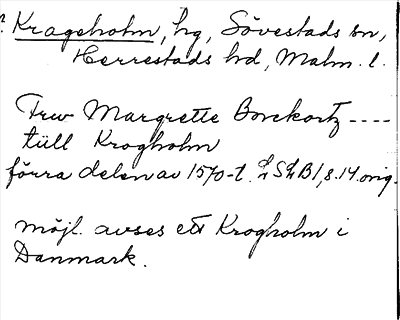 ? Krageholm, hg, Sövestads sn,
Herrestads hd, Malm. l.
Frw Margrette Borckortz ----
tüll Krogholm
förra delen av 1570-t. LSLB1, s. 14. orig.
möjl. avses ett Krogholm i
Danmark.